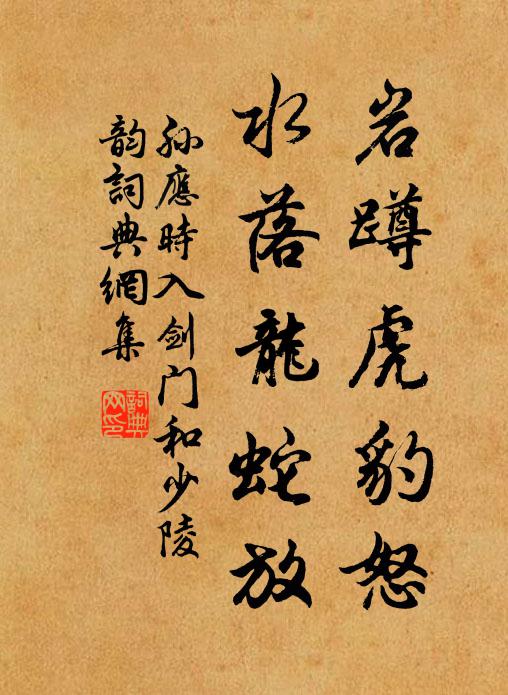 岩蹲虎豹怒
水落龍蛇放
孙應時入剑门和少陵
韵詞典網集
詞典
网印